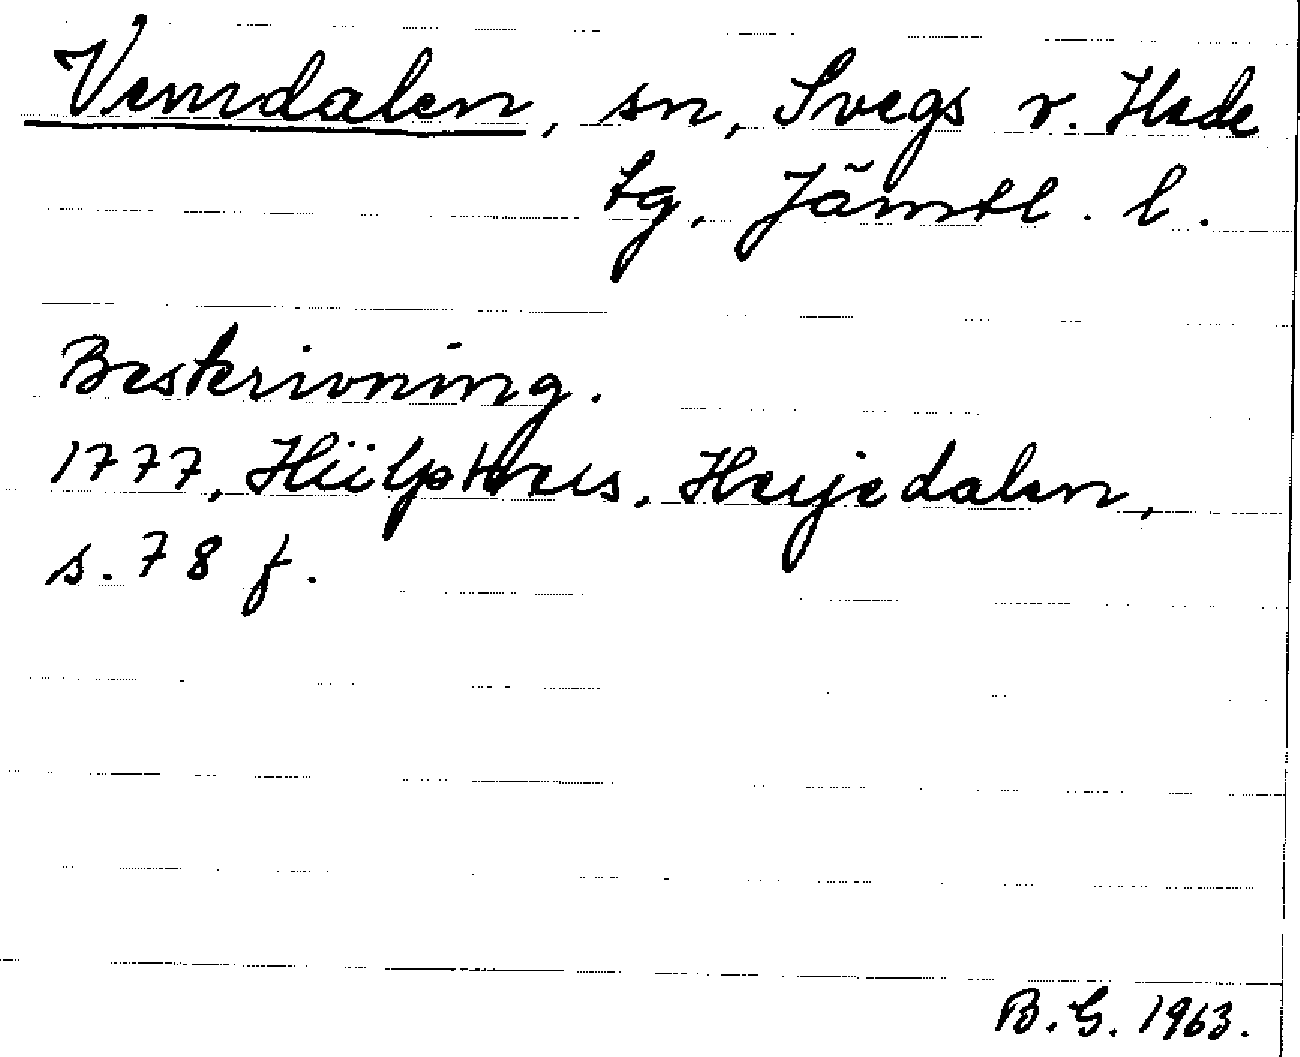 Vemdalen, sn, Svegs v. Hede
tg, Jämtl. l.
Beskrivning.
1777, Hülphers, Herjedalen,
s. 78 f.
B. G. 1963.